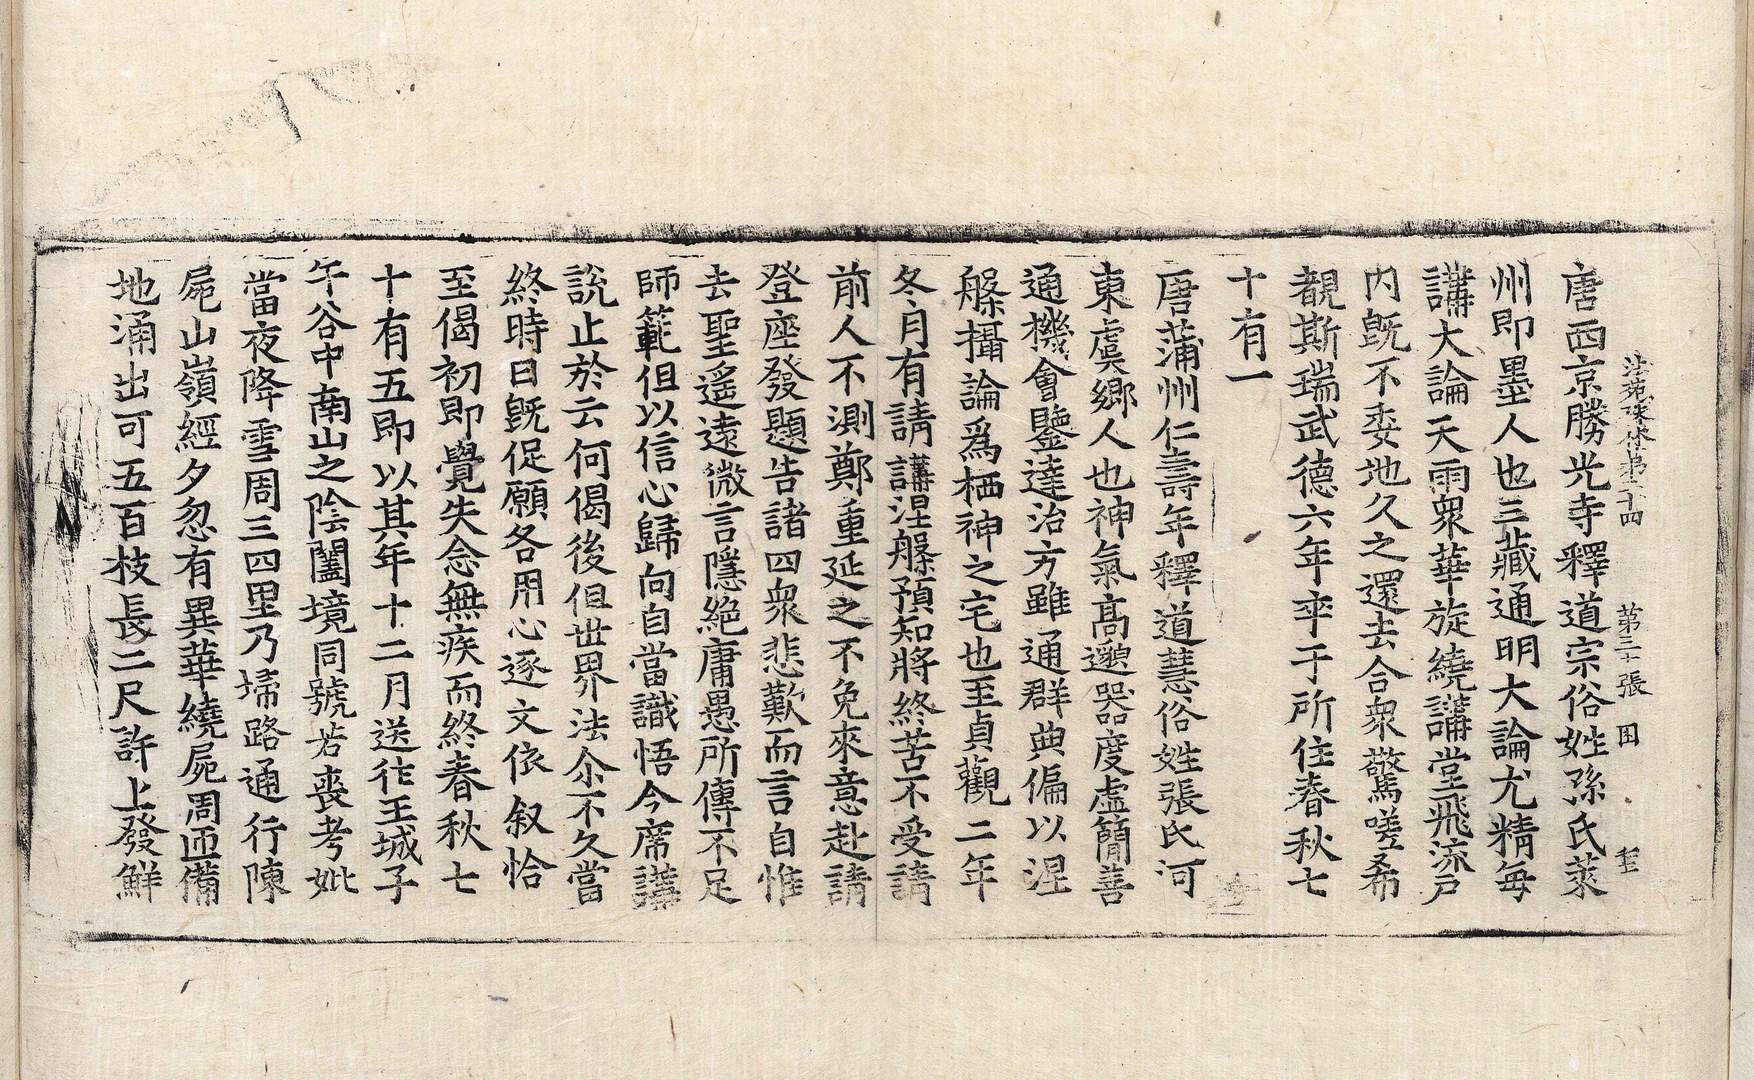 法苑珠林第二十四　第三十張　困
唐西京勝光寺釋道宗俗姓孫氏萊
州即墨人也三藏通明大論尤精每
講大論天雨衆華旋繞講堂飛流戶
内旣不委地久之還去合衆驚嗟希
覩斯瑞武德六年卒于所住春秋七
十有一
唐蒲州仁壽年釋道慧俗姓張氏河
東虞鄉人也神氣高邈器度虛簡善
通機會鑒達治方雖通群典偏以涅
槃攝論爲栖神之宅也至貞觀二年
冬月有請講涅槃預知將終苦不受請
前人不測鄭重延之不免來意赴請
登座發題告諸四衆悲歎而言自惟
去聖遥遠微言隱絶庸愚所傳不足
師範但以信心歸向自當識悟今席講
說止於云何偈後但世界法尒不久當
終時日旣促願各用心逐文依叙恰
至偈初即覺失念無疾而終春秋七
十有五即以其年十二月送徃王城子
午谷中南山之陰闔境同號若喪考妣
當夜降雪周三四里乃埽路通行陳
屍山嶺經夕忽有異華繞屍周匝備
地涌出可五百枝長二尺許上發鮮